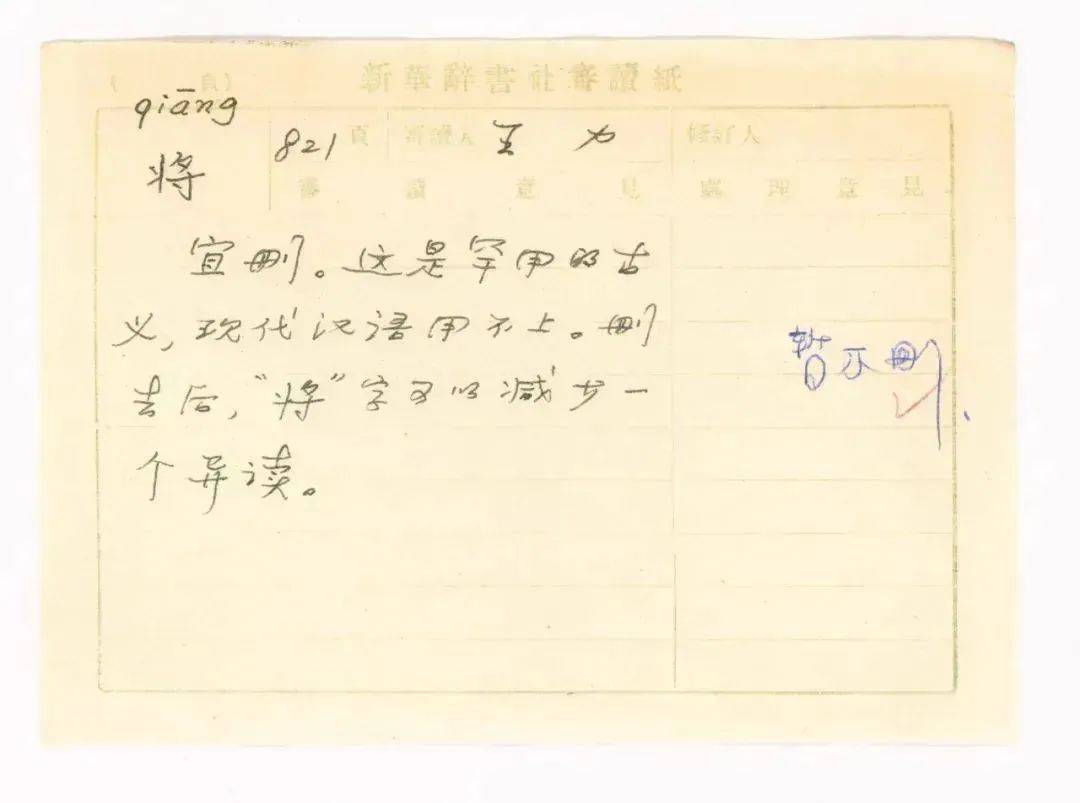 (　　頁) 新華辭書社審讀紙
qiāng
将
821 頁 審讀人 王力 修訂人
審讀意見 處理意見
宜删。这是罕用的古
义，现代汉语用不上。删
去后，“将”字可以减少一
个异读。
暂不删